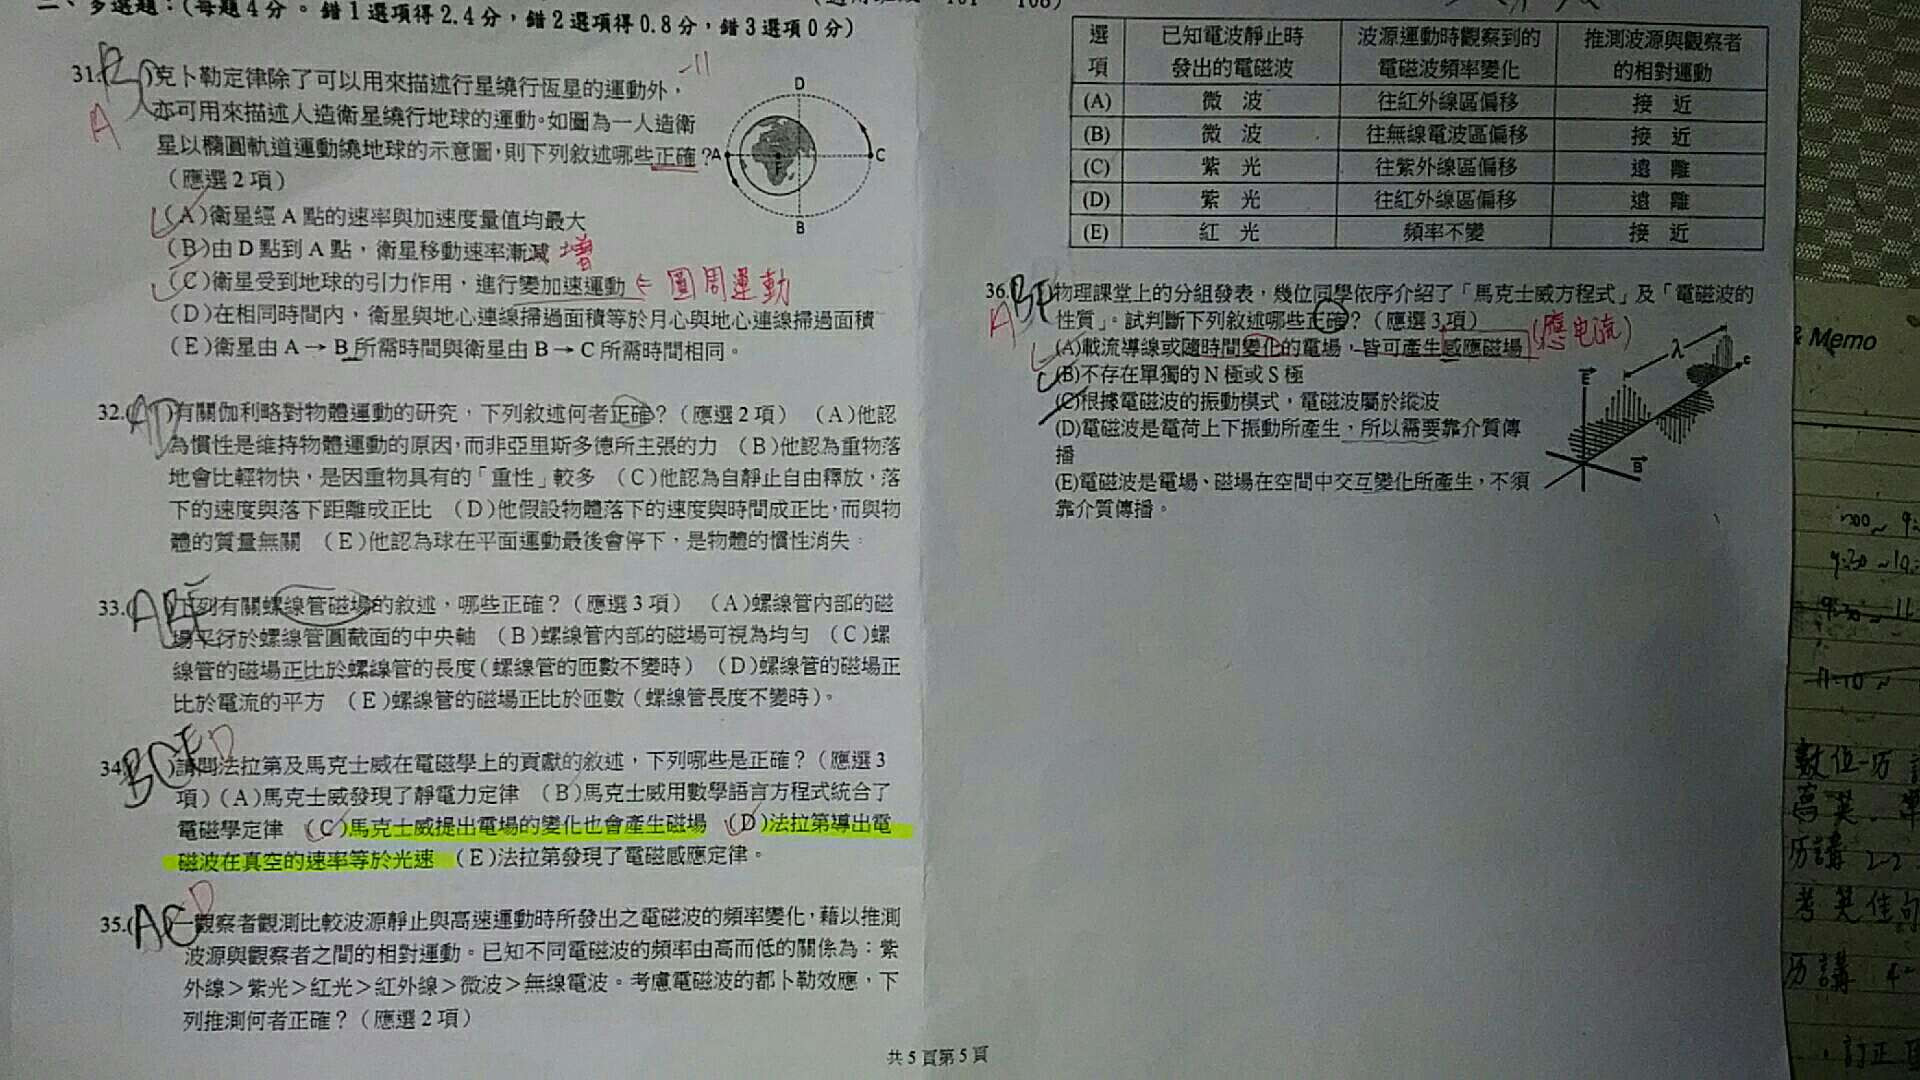 二、多選題：(每題4分。錯1選項得2.4分，錯2選項得0.8分，錯3選項0分)
31.( )克卜勒定律除了可以用來描述行星繞行恆星的運動外，
-11
A
亦可用來描述人造衛星繞行地球的運動。如圖為一人造衛
星以橢圓軌道運動繞地球的示意圖，則下列敘述哪些正確？
（應選2項）
D
A
C
B
(A)衛星經A點的速率與加速度量值均最大
(B)由D點到A點，衛星移動速率漸減 增
(C)衛星受到地球的引力作用，進行變加速運動 ← 圓周運動
(D)在相同時間內，衛星與地心連線掃過面積等於月心與地心連線掃過面積
(E)衛星由A→B所需時間與衛星由B→C所需時間相同。
32.(AD)有關伽利略對物體運動的研究，下列敘述何者正確？（應選2項） (A)他認
為慣性是維持物體運動的原因，而非亞里斯多德所主張的力 (B)他認為重物落
地會比輕物快，是因重物具有的「重性」較多 (C)他認為自靜止自由釋放，落
下的速度與落下距離成正比 (D)他假設物體落下的速度與時間成正比，而與物
體的質量無關 (E)他認為球在平面運動最後會停下，是物體的慣性消失。
33.(ABE)下列有關螺線管磁場的敘述，哪些正確？（應選3項） (A)螺線管內部的磁
場平行於螺線管圓截面的中央軸 (B)螺線管內部的磁場可視為均勻 (C)螺
線管的磁場正比於螺線管的長度（螺線管的匝數不變時） (D)螺線管的磁場正
比於電流的平方 (E)螺線管的磁場正比於匝數（螺線管長度不變時）。
34.(BCE D)請問法拉第及馬克士威在電磁學上的貢獻的敘述，下列哪些是正確？（應選3
項）(A)馬克士威發現了靜電力定律 (B)馬克士威用數學語言方程式統合了
電磁學定律 (C)馬克士威提出電場的變化也會產生磁場 (D)法拉第導出電
磁波在真空的速率等於光速 (E)法拉第發現了電磁感應定律。
35.(AC D)一觀察者觀測比較波源靜止與高速運動時所發出之電磁波的頻率變化，藉以推測
波源與觀察者之間的相對運動。已知不同電磁波的頻率由高而低的關係為：紫
外線＞紫光＞紅光＞紅外線＞微波＞無線電波。考慮電磁波的都卜勒效應，下
列推測何者正確？（應選2項）
選項 已知電波靜止時發出的電磁波 波源運動時觀察到的電磁波頻率變化 推測波源與觀察者的相對運動
(A) 微 波 往紅外線區偏移 接 近
(B) 微 波 往無線電波區偏移 接 近
(C) 紫 光 往紫外線區偏移 遠 離
(D) 紫 光 往紅外線區偏移 遠 離
(E) 紅 光 頻率不變 接 近
36.(BE)物理課堂上的分組發表，幾位同學依序介紹了「馬克士威方程式」及「電磁波的
A
性質」。試判斷下列敘述哪些正確？（應選3項）
(A)載流導線或隨時間變化的電場，皆可產生感應磁場 (應电流)
(B)不存在單獨的N極或S極
(C)根據電磁波的振動模式，電磁波屬於縱波
(D)電磁波是電荷上下振動所產生，所以需要靠介質傳
播
(E)電磁波是電場、磁場在空間中交互變化所產生，不須
靠介質傳播。
λ
E
B
c
共5頁第5頁
& Memo
訂正